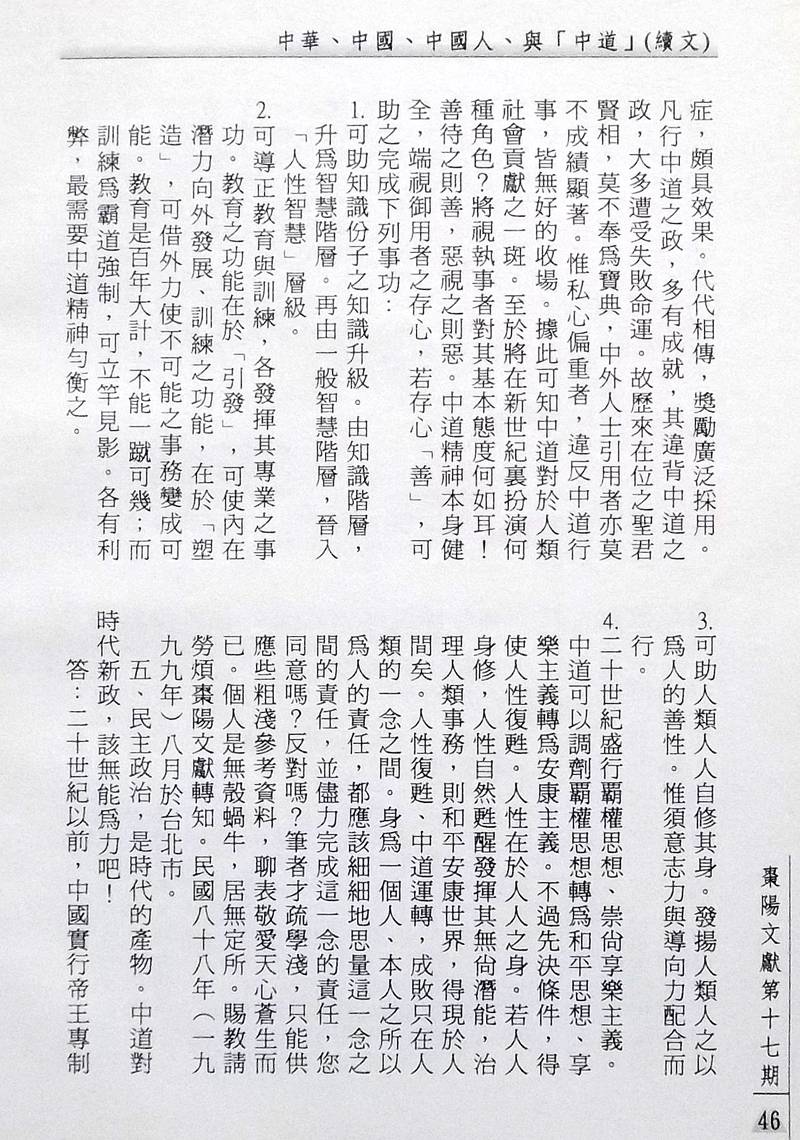 中華、中國、中國人、與「中道」(續文)
症，頗具效果。代代相傳，獎勵廣泛採用。
凡行中道之政，多有成就，其違背中道之
政，大多遭受失敗命運。故歷來在位之聖君
賢相，莫不奉為寶典，中外人士引用者亦莫
不成績顯著。惟私心偏重者，違反中道行
事，皆無好的收場。據此可知中道對於人類
社會貢獻之一斑。至於將在新世紀裏扮演何
種角色？將視執事者對其基本態度何如耳！
善待之則善，惡視之則惡。中道精神本身健
全，端視御用者之存心，若存心「善」，可
助之完成下列事功：
1.可助知識份子之知識升級。由知識階層，
升為智慧階層。再由一般智慧階層，晉入
「人性智慧」層級。
2.可導正教育與訓練，各發揮其專業之事
功。教育之功能在於「引發」，可使內在
潛力向外發展、訓練之功能，在於「塑
造」，可借外力使不可能之事務變成可
能。教育是百年大計，不能一蹴可幾；而
訓練為霸道強制，可立竿見影。各有利
弊，最需要中道精神勻衡之。
3.可助人類人人自修其身。發揚人類人之以
為人的善性。惟須意志力與導向力配合而
行。
4.二十世紀盛行霸權思想、崇尙享樂主義。
中道可以調劑覇權思想轉為和平思想、享
樂主義轉為安康主義。不過先決條件，得
使人性復甦。人性在於人人之身。若人人
身修，人性自然甦醒發揮其無尙潛能，治
理人類事務，則和平安康世界，得現於人
間矣。人性復甦、中道運轉，成敗只在人
類的一念之間。身為一個人、本人之所以
為人的責任，都應該細細地思量這一念之
間的責任，並儘力完成這一念的責任，您
同意嗎？反對嗎？筆者才疏學淺，只能供
應些粗淺參考資料，聊表敬愛天心蒼生而
已。個人是無殼蝸牛，居無定所。賜教請
勞煩棗陽文獻轉知。民國八十八年（一九
九九年）八月於台北市。
五、民主政治，是時代的產物。中道對
時代新政，該無能為力吧！
答：二十世紀以前，中國實行帝王專制
棗陽文獻第十七期
46